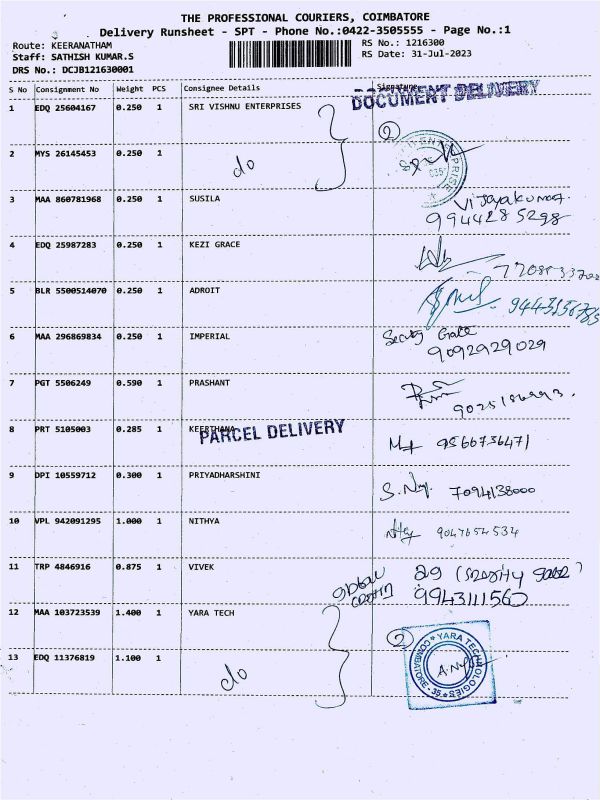 THE PROFESSIONAL COURIERS, COIMBATORE
Delivery Runsheet - SPT - Phone No.:0422-3505555 - Page No.:1
Route: KEERANATHAM RS No.: 1216300
Staff: SATHISH KUMAR.S RS Date: 31-Jul-2023
DRS No.: DCJB121630001
S No Consignment No Weight PCS Consignee Details Signature
DOCUMENT DELIVERY
1 EDQ 25604167 0.250 1 SRI VISHNU ENTERPRISES
2
2 MYS 26145453 0.250 1 do
3 MAA 860781968 0.250 1 SUSILA Vijayakumar
9944285298
4 EDQ 25987283 0.250 1 KEZI GRACE
5 BLR 5500514070 0.250 1 ADROIT
6 MAA 296869834 0.250 1 IMPERIAL
9092929029
7 PGT 5506249 0.590 1 PRASHANT
8 PRT 5105003 0.285 1 KEERTHANA 9566736471
PARCEL DELIVERY
9 DPI 10559712 0.300 1 PRIYADHARSHINI 7094138000
10 VPL 942091295 1.000 1 NITHYA 9047654534
11 TRP 4846916 0.875 1 VIVEK
9943111560
12 MAA 103723539 1.400 1 YARA TECH
2
YARA TECHNOLOGIES COIMBATORE - 35
13 EDQ 11376819 1.100 1 do